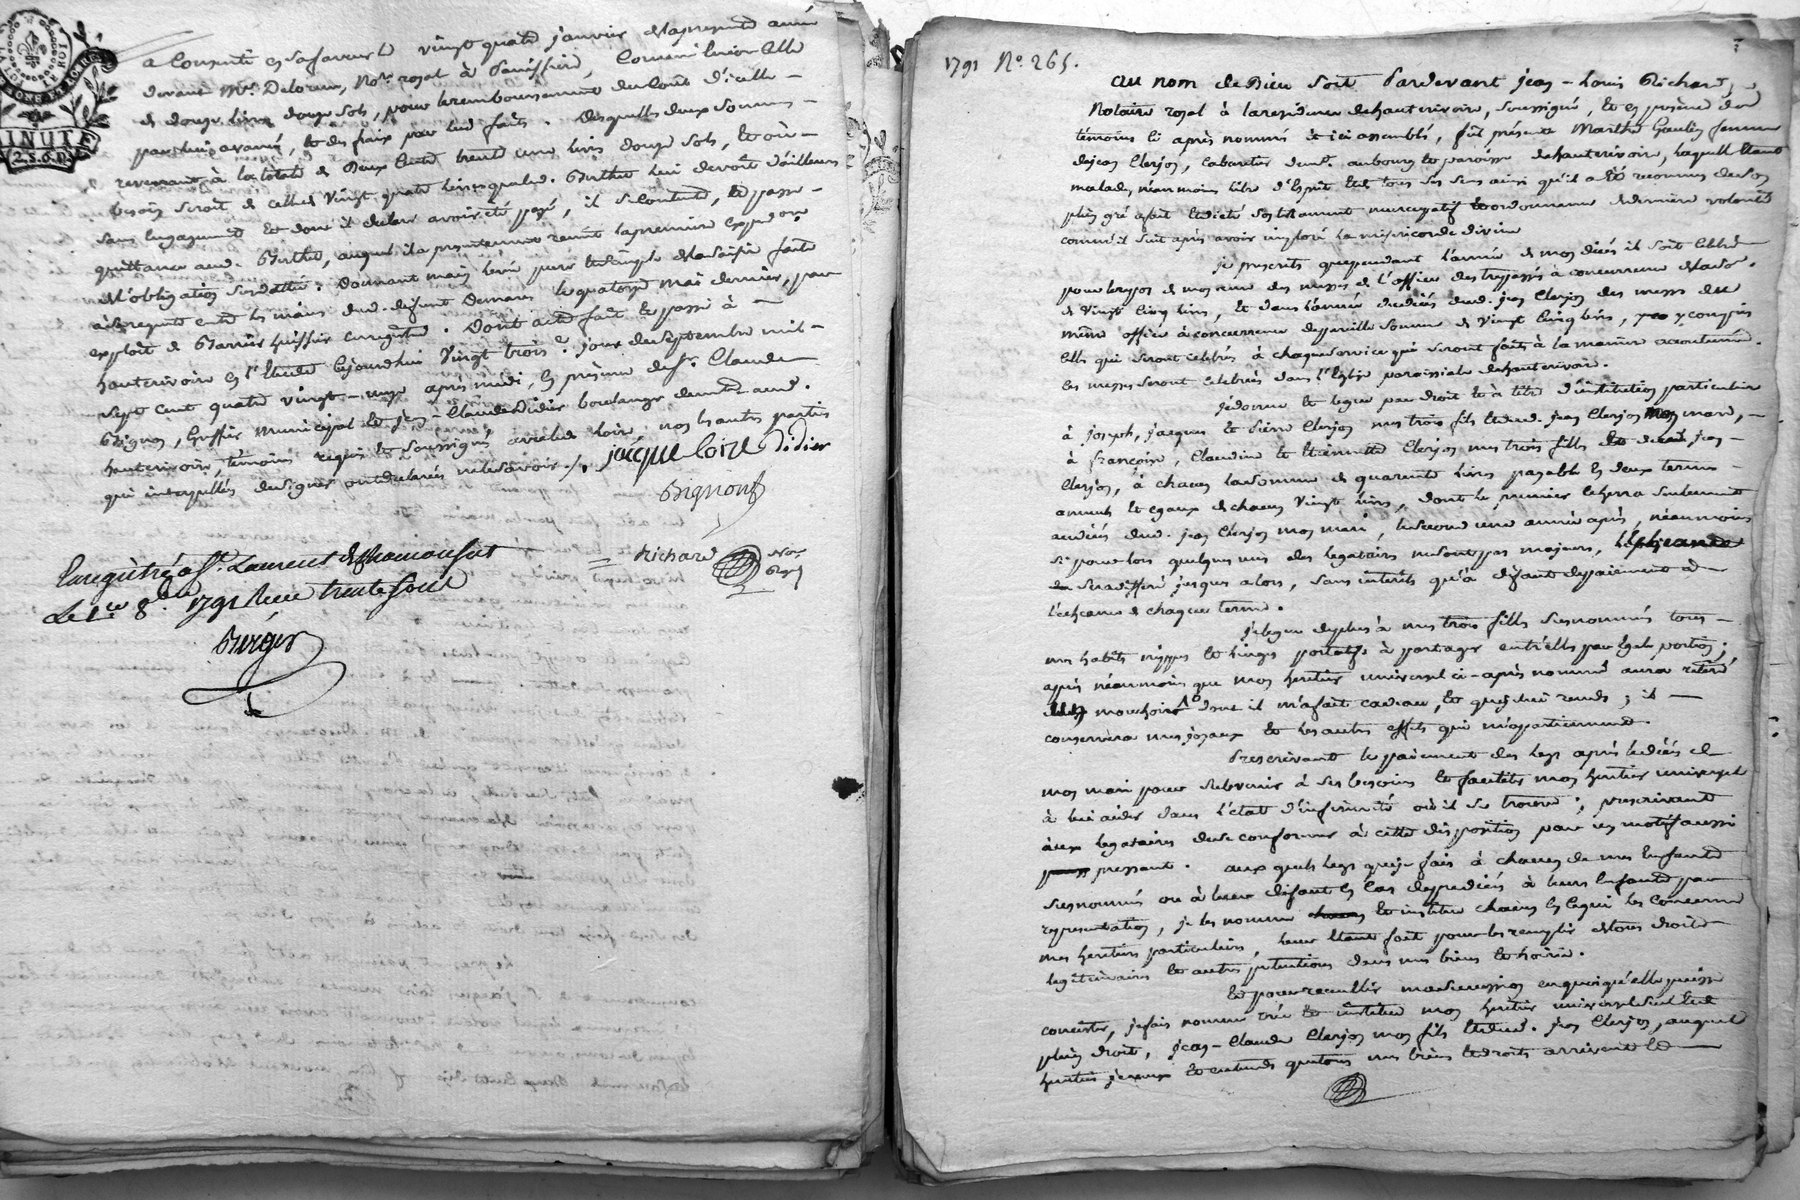 MINUTE
2. S. 6. D.
a Consenti en sa faveur le vingt quatre janvier de la presente année
devant Me. Delorme, Nore. royal à
de douze livres douze sols, pour le remboursement du Coût d'icelle
par lui avancé, et des frais par lui faits. Desquelles deux sommes
revenant à la totale de Deux Cents trente une livres douze sols, et où
besoin seroit de celle de Vingt quatre livres que led. Berthet lui devoit d'ailleurs
sans engagement et dont il declare avoir été payé, il se contente, et passe
quittance aud. Berthet, auquel il a presentement remis la premiere expedon
de l'obligation susdattée. Donnant main levée pure et simple de la saisie faite
à sa requete entre les mains dud. defunt le quatorze mai dernier, par
exploit de huissier enregistré. Dont acte fait et passé à
hauterivoire en l'Etude cejourd'hui Vingt trois e. jour de septembre mil
sept cent quatre vingt-onze après midi, en présence de Sr. Claude
Bignon, Greffier Municipal et jean-Claude Didier boulanger demt. aud.
hauterivoire, témoins requis et soussignés avec led. Loire, non les autres parties
qui interpellées de signer ont declaré ne le savoir./.
jacque loire Didier
Bignon
Richard Nore. Royal
Enregistré a St. Laurent de Chamousset
Le 1er 8bre 1791 Recu trente sous
Berger
1791 No. 265.
au nom de Dieu soit Pardevant jean-Louis Richard,
Notaire royal à la residence de hauterivoire, soussigné, et en présence des
témoins ci après nommés et ici assemblés, fut présente Marthe Goulin femme
de jean Clerjon, Cabaretier demt. au bourg et paroisse de hauterivoire, laquelle étant
malade, néanmoins libre d'Esprit et de tous ses sens ainsi qu'il a été reconnu de son
plein gré a fait et dicté son testament nuncupatif et ordonnance de derniere volonté
comme il suit après avoir imploré la misericorde divine
je prescrits que pendant l'année de mon décès il soit célébré
pour le repos de mon ame des messes de l'office des trépassés à concurrence de la so.
de Vingt Cinq livres, et dans l'année du décès dud. jean Clerjon des messes du
même office à concurrence de pareille somme de Vingt Cinq livres, y compris
celles qui seront celebrées à chaque service qui seront faits à la maniere accoutumée.
Ces messes seront celebrées dans l'Eglise paroissiale de hauterivoire.
je donne et legue par droit et à titre d'institution particuliere
à joseph, jacques et Pierre Clerjon mes trois fils et dud. jean Clerjon mon mari,
à françoise, Claudine et Etiennette Clerjon mes trois filles et dud. jean
Clerjon, à chacun la somme de quarante livres payable en deux termes
annuels et egaux de chacun Vingt livres, dont le premier écherra seulement
au décès dud. jean Clerjon mon mari, le second une année après, néanmoins
si pour lors quelques uns des legataires ne sont pas majeurs, l'échéance
sera differé jusques alors, sans interêts qu'à défaut de paiement à
l'échéance de chaque terme.
je legue de plus à mes trois filles susnommées tous
mes habits nippes et linges portatifs à partager entr'elles par égale portion;
après néanmoins que mon heritier universel ci-après nommé aura retiré
mouchoirs dont il m'a fait cadeau, et que je lui rends; il
conservera mes joyaux et les autres effets qui m'appartiennent.
Prescrivant le paiement des legs après le décès de
mon mari pour subvenir à ses besoins et faciliter mon heritier universel
à lui aider dans l'état d'infirmité où il se trouve; prescrivant
à mes legataires de se conformer à cette disposition pour un motif aussi
pressant. aux quels legs que je fais à chacun de mes Enfants
susnommés ou à leur défaut en cas de prédécès à leurs Enfants par
representation, je les nomme et institue chacun en ce qui les concerne
mes heritiers particuliers, leur étant fait pour les remplir de tous droits
légitimaires et autres prétentions dans mes biens et hoirie.
Et pour recueillir ma succession en quoi qu'elle puisse
consister, je fais nomme crée et institue mon heritier universel seul et de
plein droit, jean-Claude Clerjon mon fils et dud. jean Clerjon, auquel
heritier je veux et entends que tous mes biens et droits arrivent et